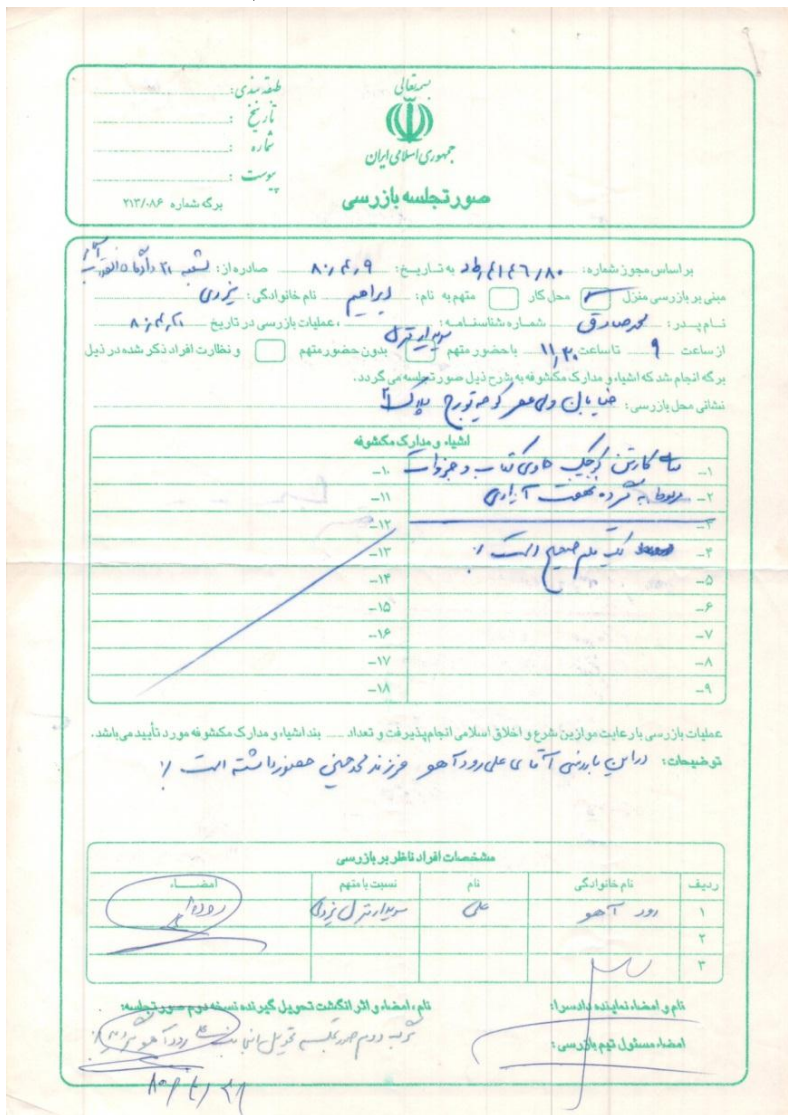 بسمه تعالی
جمهوری اسلامی ایران
صورتجلسه بازرسی
طبقه بندی:
تاریخ:
شماره:
پیوست:
برگه شماره ۲۱۳/۰۸۶
بر اساس مجوز شماره: به تاریخ: ۸۰,۴,۹ صادره از: شعبه ۲۶
مبنی بر بازرسی منزل محل کار متهم به نام: ابراهیم نام خانوادگی: یزدی
نام پدر: محمدصادق شماره شناسنامه: ، عملیات بازرسی در تاریخ
سرایدار منزل
از ساعت ۹ تا ساعت ۱۱,۳۰ با حضور متهم بدون حضور متهم و نظارت افراد ذکر شده در ذیل
برگه انجام شد که اشیاء و مدارک مکشوفه به شرح ذیل صورتجلسه می گردد.
نشانی محل بازرسی: خیابان ولی عصر کوچه تورج پلاک
اشیاء و مدارک مکشوفه
۱- کارتن کوچک حاوی کتاب و جزوات
۲- مربوط به گروه نهضت آزادی
۳-
۴- صحیح است
۵-
۶-
۷-
۸-
۹-
۱۰-
۱۱-
۱۲-
۱۳-
۱۴-
۱۵-
۱۶-
۱۷-
۱۸-
عملیات بازرسی با رعایت موازین شرع و اخلاق اسلامی انجام پذیرفت و تعداد بند اشیاء و مدارک مکشوفه مورد تأیید می باشد.
توضیحات: در این بازرسی آقای علی رودآهو فرزند حضور داشته است
مشخصات افراد ناظر بر بازرسی
ردیف نام خانوادگی نام نسبت با متهم امضاء
۱ رود آهو علی سرایدار منزل یزدی
۲
۳
نام و امضاء نماینده دادسرا:
امضاء مسئول تیم بازرسی:
نام، امضاء و اثر انگشت تحویل گیرنده نسخه دوم صورتجلسه:
برگه دوم صورتجلسه تحویل اینجانب رودآهو گردید